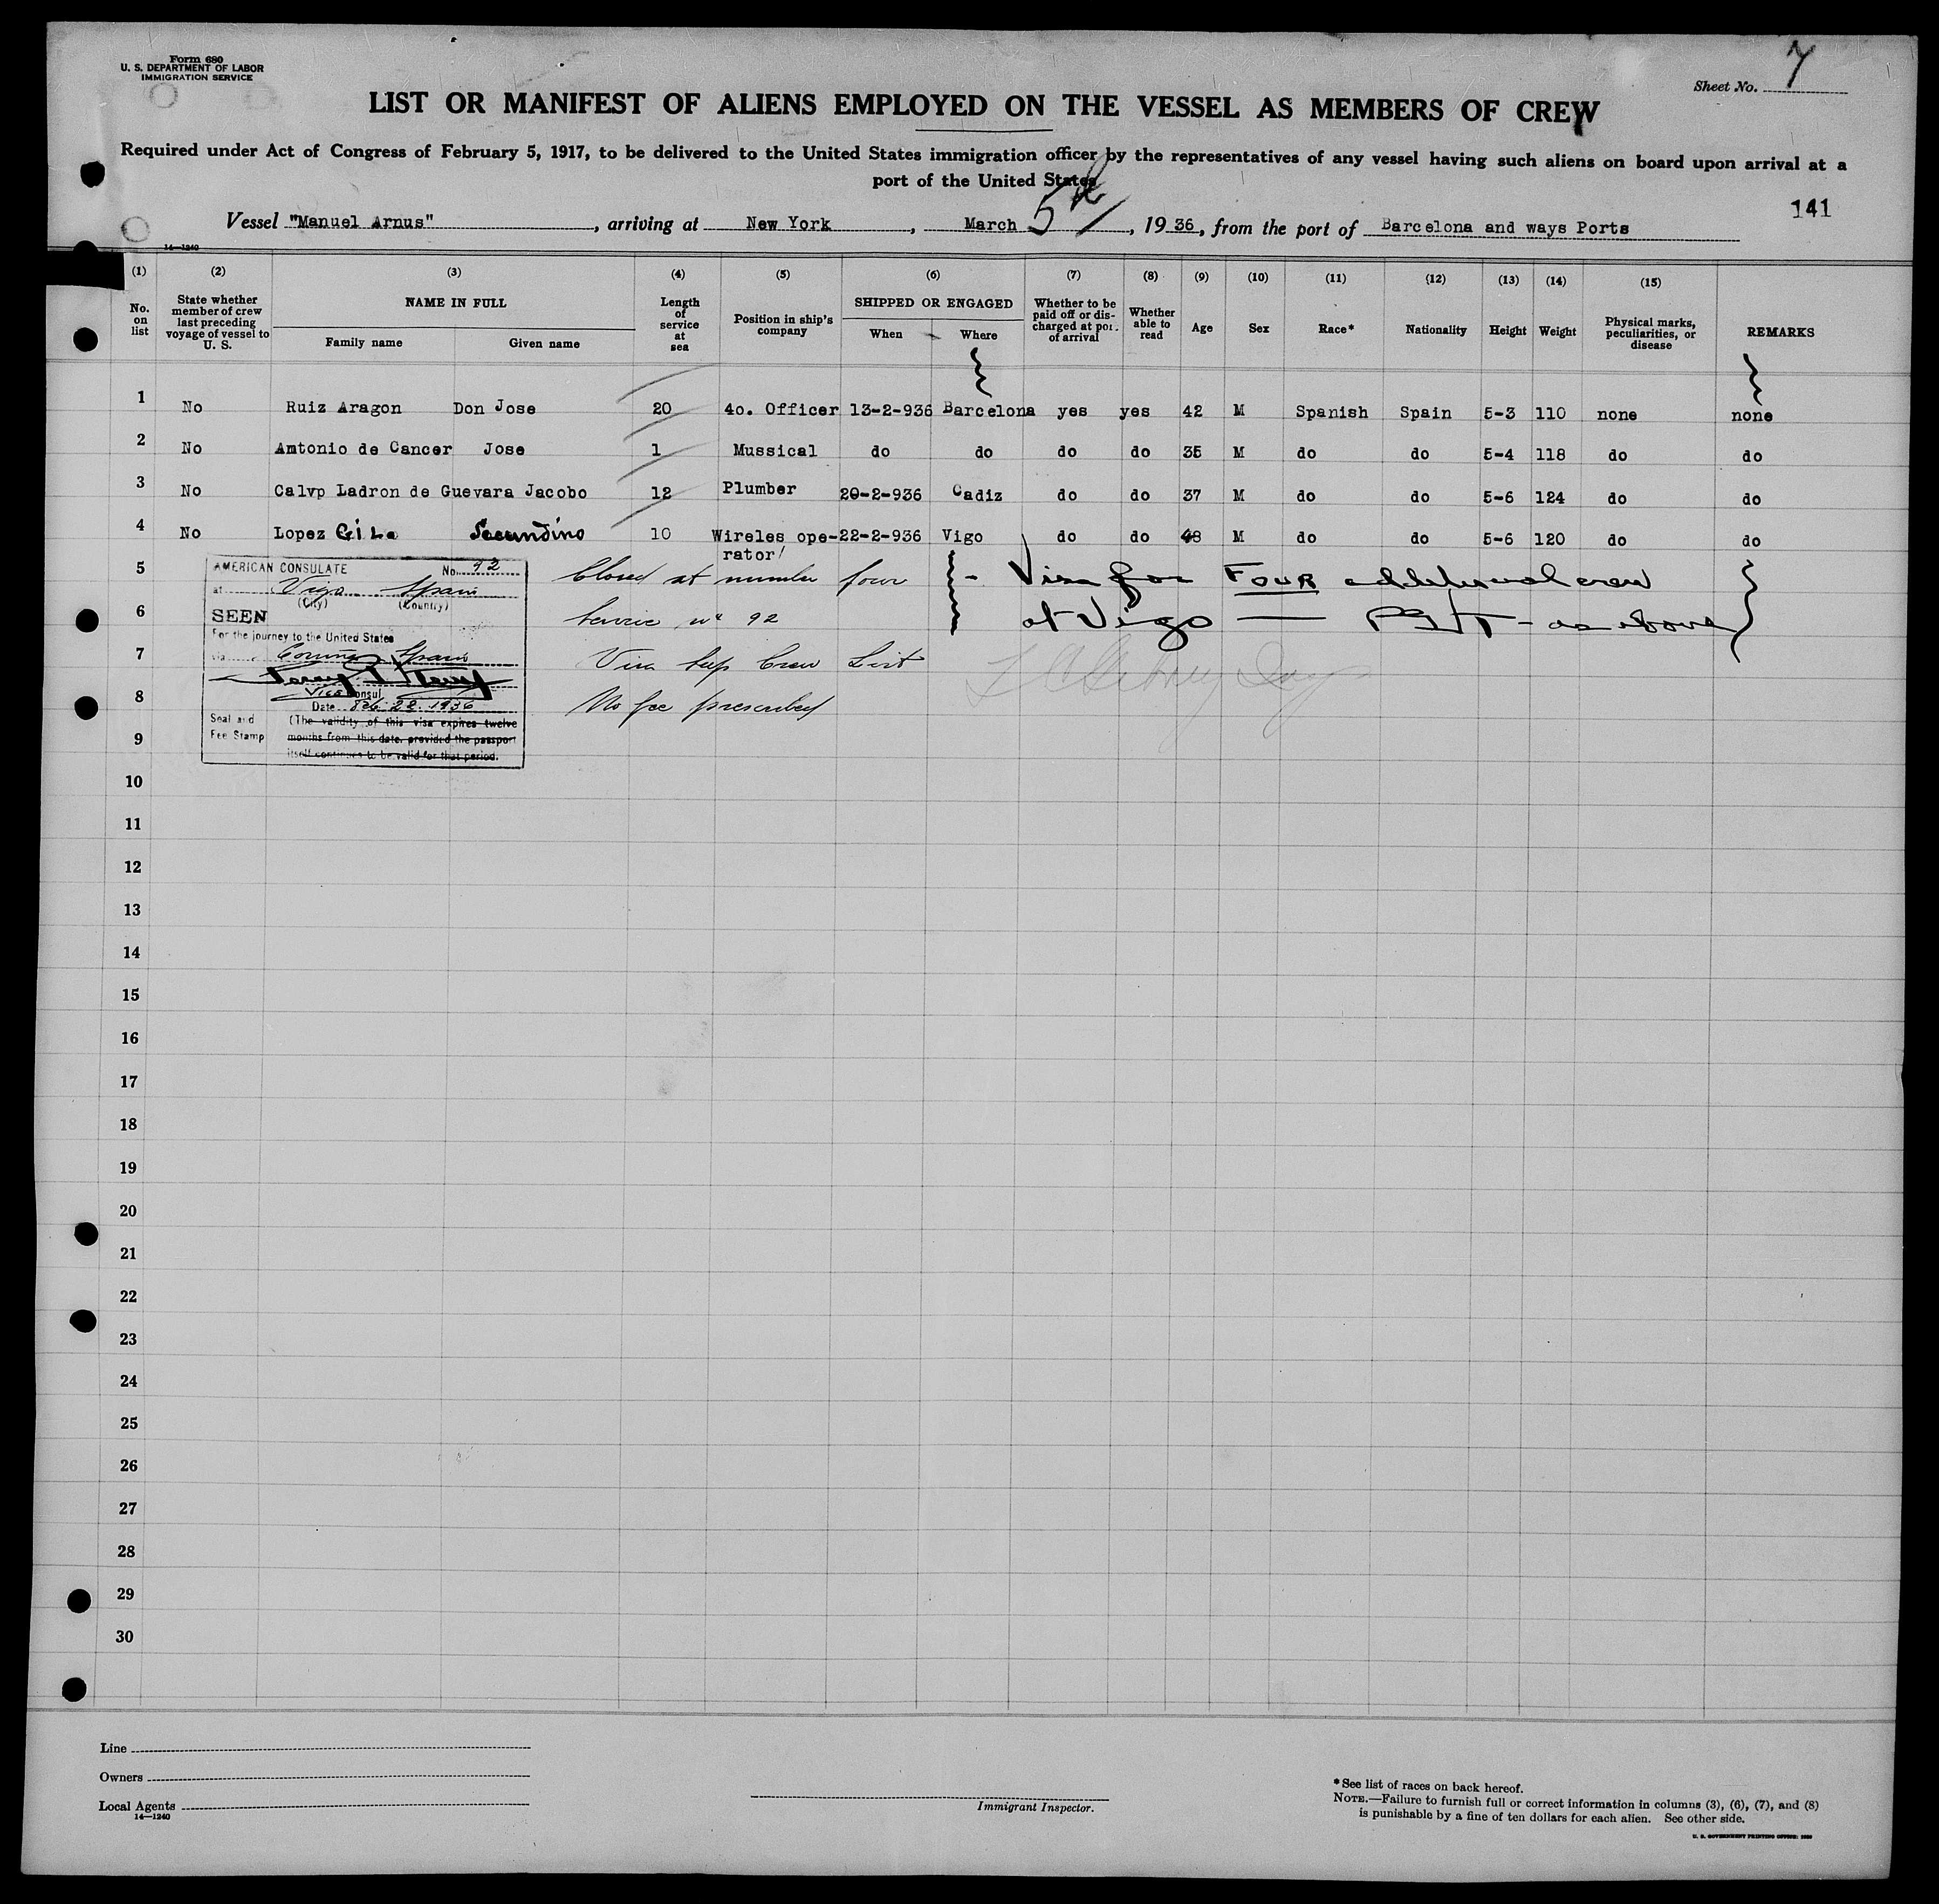 Form 680
U. S. DEPARTMENT OF LABOR
IMMIGRATION SERVICE
Sheet No. 7
LIST OR MANIFEST OF ALIENS EMPLOYED ON THE VESSEL AS MEMBERS OF CREW
Required under Act of Congress of February 5, 1917, to be delivered to the United States immigration officer by the representatives of any vessel having such aliens on board upon arrival at a
port of the United States
141
Vessel "Manuel Arnus", arriving at New York, March 5th, 1936, from the port of Barcelona and ways Ports
14—1240
(1) (2) (3) (4) (5) (6) (7) (8) (9) (10) (11) (12) (13) (14) (15)
No. on list State whether member of crew last preceding voyage of vessel to U. S. NAME IN FULL Family name Given name Length of service at sea Position in ship's company SHIPPED OR ENGAGED When Where Whether to be paid off or discharged at port of arrival Whether able to read Age Sex Race* Nationality Height Weight Physical marks, peculiarities, or disease REMARKS
1 No Ruiz Aragon Don Jose 20 4o. Officer 13-2-936 Barcelona yes yes 42 M Spanish Spain 5-3 110 none none
2 No Antonio de Cancer Jose 1 Mussical do do do do 35 M do do 5-4 118 do do
3 No Calvp Ladron de Guevara Jacobo 12 Plumber 20-2-936 Cadiz do do 37 M do do 5-6 124 do do
4 No Lopez Secundino 10 Wireles ope-22-2-936 Vigo do do 48 M do do 5-6 120 do do
rator
5 Closed at number four Visa for FOUR additional crew
6 Service no 92 at Vigo — as above
7 Visa Sup Crew List
8 No fee prescribed
AMERICAN CONSULATE No. 92
at Vigo Spain
(City) (Country)
SEEN
For the journey to the United States
via Spain
Vice Consul
Date Feb. 22. 1936
Seal and (The validity of this visa expires twelve
Fee Stamp months from this date, provided the passport
itself continues to be valid for that period.
9
10
11
12
13
14
15
16
17
18
19
20
21
22
23
24
25
26
27
28
29
30
Line
Owners
Local Agents
14—1240
Immigrant Inspector.
*See list of races on back hereof.
NOTE.—Failure to furnish full or correct information in columns (3), (6), (7), and (8)
is punishable by a fine of ten dollars for each alien. See other side.
U. S. GOVERNMENT PRINTING OFFICE: